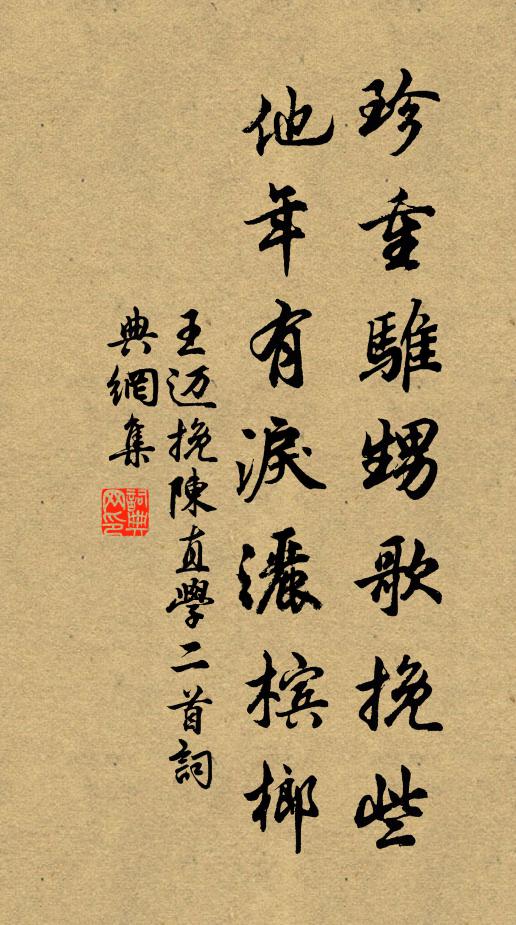 珍重騅甥歌挽些
他年有淚灑檳榔
王迈挽陳直學二首詞
典網集
詞典
网印